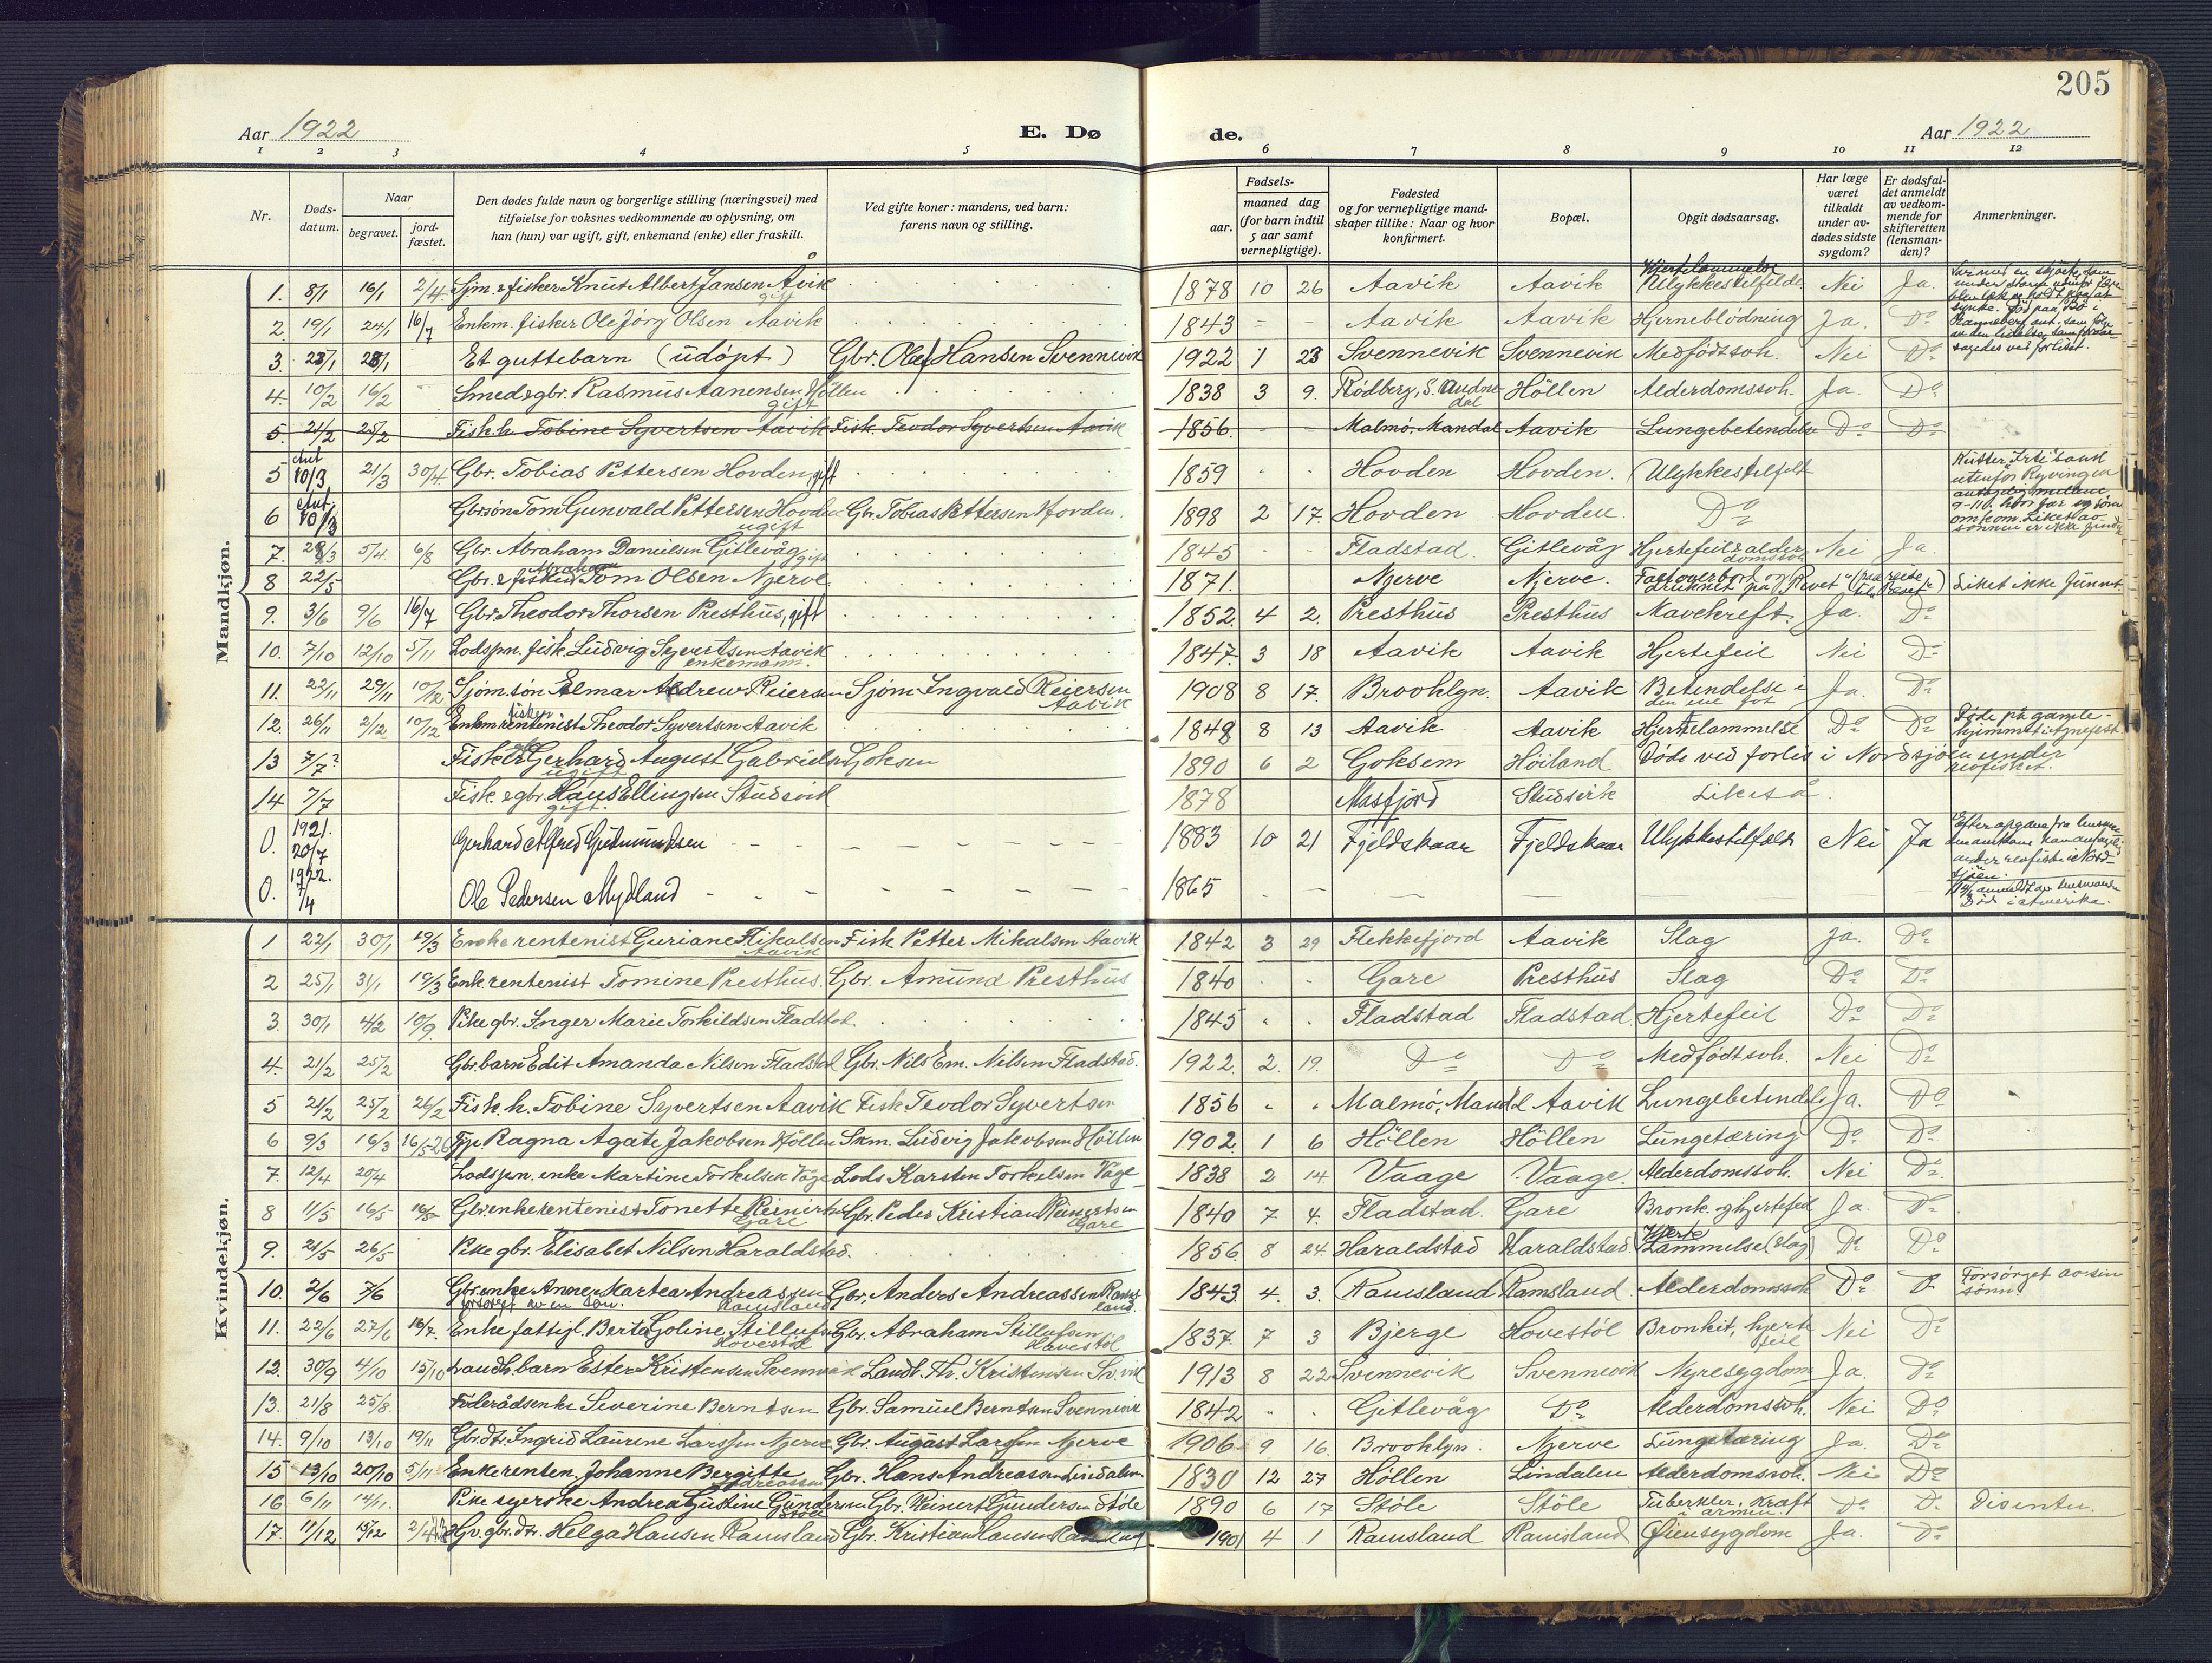 205
Aar 1922 E. Dø de. Aar 1922
1 2 3 4 5 6 7 8 9 10 11 12
Nr.
Døds-
datum.
Naar
begravet.
jord-
fæstet.
Den dødes fulde navn og borgerlige stilling (næringsvei) med
tilføielse for voksnes vedkommende av oplysning, om
han (hun) var ugift, gift, enkemand (enke) eller fraskilt.
Ved gifte koner: mandens, ved barn:
farens navn og stilling.
Fødsels-
aar.
maaned dag
(for barn indtil
5 aar samt
vernepligtige).
Fødested
og for vernepligtige mand-
skaper tillike: Naar og hvor
konfirmert.
Bopæl.
Opgit dødsaarsag.
Har læge
været
tilkaldt
under av-
dødes sidste
sygdom?
Er dødsfal-
det anmeldt
av vedkom-
mende for
skifteretten
(lensman-
den)?
Anmerkninger.
Mandkjøn.
1. 8/1 16/1 2/4 Sjm. & fisker Knut Albert Jansen Åvik gift 1878 10 26 Aavik Aavik Hjertelammelse Ulykkestilfelde Nei Ja.
2. 19/1 24/1 16/7 Enkm. fisker Ole Jörg Olsen Aavik 1843 Aavik Aavik Hjerneblödning Ja. Do
3. 23/1 28/1 Et guttebarn (udöpt) Gbr. Olaf Hansen Svennevik 1922 1 23 Svennevik Svennevik Medfödtsvh. Nei Do
4. 10/2 16/2 Smed & gbr. Rasmus Aanensen Höllen gift 1838 3 9. Rödberg, S. Audnedal Höllen Alderdomssvh. Ja. Do
5. 21/2 25/2 Fisk. h. Tobine Syvertsen Aavik Fisk. Teodor Syvertsen Aavik 1856 Malmö, Mandal Aavik Lungebetendelse Do Do
5 Ant 10/3 21/3 30/4 Gbr. Tobias Pettersen Hovden, gift 1859 Hovden Hovden. Ulykkestilfelt
6 Ant. 10/3 Gbrsøn Tom Gunvald Pettersen Hovden ugift Gbr. Tobias Pettersen Hovden. 1898 2 17. Hovden Hovden. Do
7. 28/3 5/4 6/8 Gbr. Abraham Danielsen Gitlevåg gift 1845 Fladstad. Gitlevåg Hjertefeil & alderdomssvh Nei Ja.
8 22/5 Gbr. & fisker Abraham Tom Olsen Njerve 1871. Njerve Njerve. Liket ikke funnet.
9. 3/6 9/6 16/7 Gbr. Theodor Thorsen Presthus, gift 1852 4 2. Presthus Presthus Mavekreft. Ja. Do
10. 7/10 12/10 5/11 Lodspn. fisk. Ludvig Syvertsen Aavik enkemann. 1847. 3 18 Aavik Aavik Hjertefeil Nei Do
11. 22/11 29/11 10/12 Sjöm. sön Elmar Andrew Reiersen Sjöm. Ingvald Reiersen Aavik 1908 8 17. Brooklyn. Aavik Betendelse i den ene fot Ja. Do
12. 26/11 2/12 10/12 Enkm rentenist fisker Theodor Syvertsen Aavik 1848 8 13 Aavik Aavik Hjertelammelse Do Do Döde på gamle-hjemmet i Agnefest
13 7/7? Fisker Gerhard August Gabrielsen Goksem ugift 1890 6 2 Goksem Höiland Döde ved forlis i Nordsjöen under
14 7/7 Fisk. & gbr. Hans Ellingsen Studsvik gift. 1878 Masfjord Studsvik Likeså.
0. 1921. 20/7 Gerhard Alfred Gudmundsen 1883 10 21 Fjeldskaar Fjeldskaar Ulykkestilfælde Nei Ja
0. 1922. 7/4 Ole Pedersen Mydland 1865 Död i Amerika.
Kvindekjøn.
1 22/1 30/1 19/3 Enke rentenist Guriane Mikalsen Aavik Fisk Petter Mikalsen Aavik 1842 3 29 Flekkefjord Aavik Slag Ja. Do
2 25/1 31/1 19/3 Enk. rentenist Tomine Presthus. Gbr. Amund Presthus 1840 Gare Presthus Slag Do Do
3. 30/1 4/2 10/9 Pike gbr. Inger Marie Torkildsen Fladstad. 1845 Fladstad Fladstad Hjertefeil Do Do
4. 21/2 25/2 Gbr. barn Edit Amanda Nilsen Fladstad Gbr. Nils Em. Nilsen Fladstad. 1922. 2. 19. Do Do Medfödtsvh. Nei Do
5 21/2 25/2 26/2 Fisk. h. Tobine Syvertsen Aavik Fisk Teodor Syvertsen 1856 Malmö, Mandal Aavik Lungebetendelse Ja. Do
6 9/3 16/3 Ragna Agate Jakobsen Höllen Ludvig Jakobsen Höllen 1902. 1 6 Höllen Höllen Lungetæring Do Do
7. 12/4 20/4 Lodspn. enke Martine Torkelsen Våge Lods Karsten Torkelsen Våge 1838 2 14 Vaage Vaage. Alderdomssvh. Nei Do
8 11/5 16/5 16/5 Gbr. enke rentenist Tonette Reinertsen Gare Gbr. Peder Kristian Reinertsen Gare 1840 7 4. Fladstad. Gare Bronk. og hjertefeil Ja. Do
9. 21/5 26/5 Pike gbr. Elisabet Nilsen Haraldstad. 1856 8 24. Haraldstad Haraldstad Hjerte Lammelse (slag) Do Do
10. 2/6 7/6 Gbr. enke Anne Martea Andreassen Ramsland forsörget av en sön. Gbr. Anders Andreassen Ramsland. 1843 4. 3. Ramsland Ramsland. Alderdomssvh Do D Forsörget av sin sönn.
11. 22/6 27/6 16/7. Enke fattigl. Berte Goline Stillufsen Hovestöl Gbr. Abraham Stillufsen Hovestöl 1837. 7 3 Bjerge Hovestöl Bronkit, hjertefeil Nei Do
12. 30/9 4/10 15/10 Landh. barn Ester Kristensen Svennevik Landh. Th. Kristensen Sv.vik 1913 8 22 Svennevik Svennevik Nyresygdom Ja. Do
13. 21/8 25/8 Föderådsenke Severine Berntsen Gbr. Samuel Berntsen Svennevik 1842 Gitlevåg Do Alderdomssvh. Nei Do
14. 9/10 13/10 19/11 Gbr. dtr. Ingrid Laurene Larssen Njerve Gbr. August Larssen Njerve 1906 9 16. Brooklyn. Njerve Lungetæring Ja. Do
15 13/10 20/10 5/11 Enke renten. Johanne Bergitte Andreassen Gbr. Hans Andreassen Lindalen. 1830 12 27 Höllen Lindalen Alderdomssvh. Nei Do
16 6/11 14/11. Pike syerske Andrea Gustine Gundersen Støle Gbr. Reinert Gundersen Støle 1890 6 17 Støle Støle Tuberkler. Kræft i armen. Do D.
17. 11/12 15/12 Hjv. gbr. dtr. Helga Hansen Ramsland Gbr. Kristian Hansen Ramsland 1901 4 1 Ramsland Ramsland Øiensygdom Ja. Do